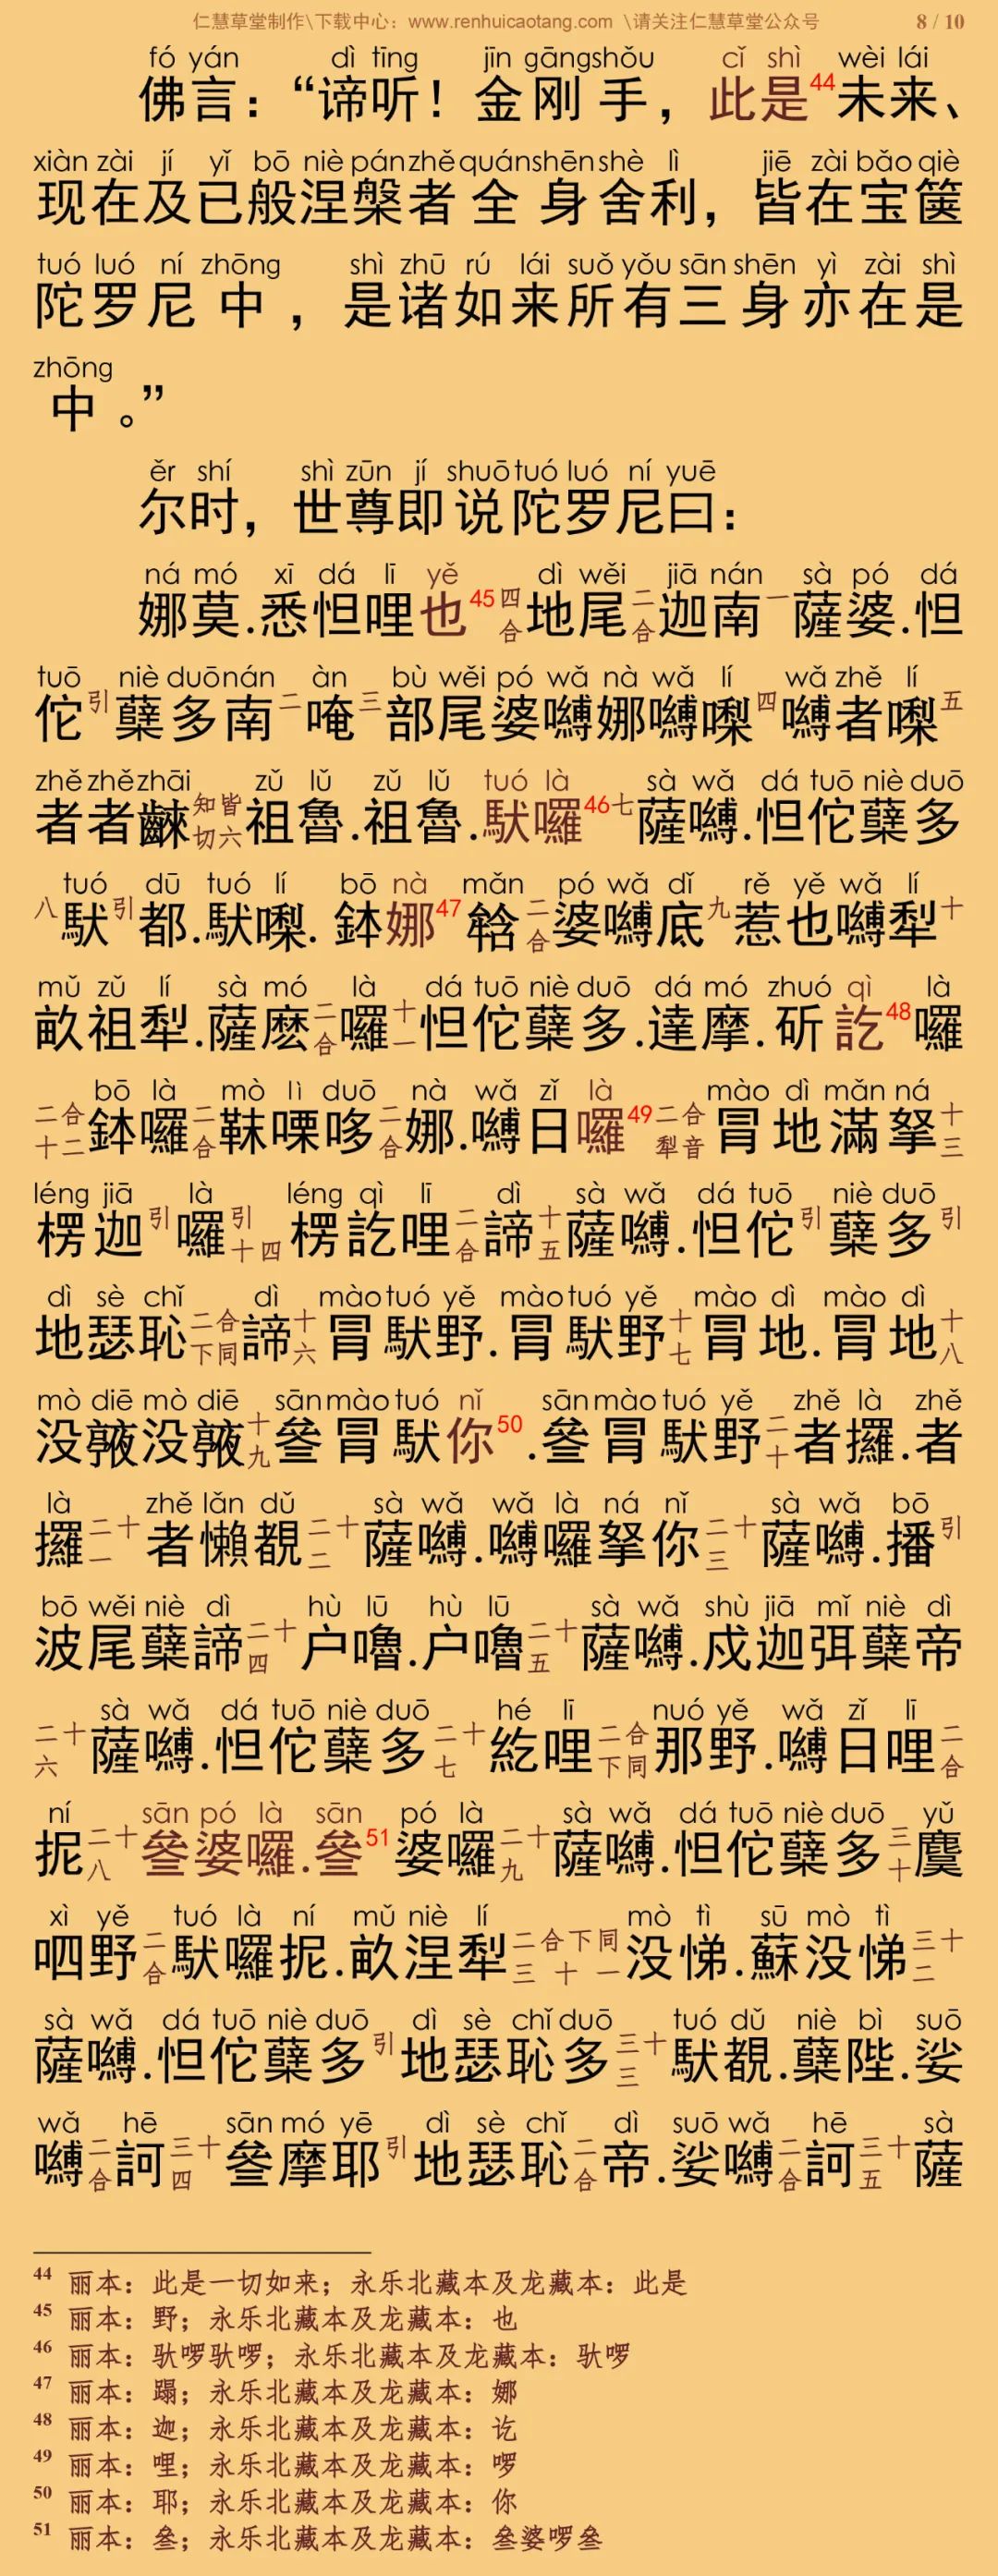 仁慧草堂制作\下载中心：www.renhuicaotang.com \请关注仁慧草堂公众号 8 / 10
fó yán dì tīng jīn gāngshǒu cǐ shì wèi lái
佛言：“谛听！金刚手，此是44未来、
xiàn zài jí yǐ bō niè pánzhěquánshēnshè lì jiē zài bǎo qiè
现在及已般涅槃者全身舍利，皆在宝箧
tuó luó ní zhōng shì zhū rú lái suǒ yǒu sān shēn yì zài shì
陀罗尼中，是诸如来所有三身亦在是
zhōng
中。”
ěr shí shì zūn jí shuō tuó luó ní yuē
尔时，世尊即说陀罗尼曰：
ná mó xī dá lī yě dì wěi jiā nán sà pó dá
娜莫.悉怛哩也45四合地尾二合迦南一薩婆.怛
tuō niè duō nán àn bù wěi pó wǎ nà wǎ lí wǎ zhě lí
佗引蘖多南二唵三部尾婆嚩娜嚩㘑四嚩者㘑五
zhě zhě zhāi zǔ lǔ zǔ lǔ tuó là sà wǎ dá tuō niè duō
者者齻知皆切六祖魯.祖魯.馱囉46七薩嚩.怛佗蘖多
tuó dū tuó lí bō nà mǎn pó wǎ dǐ rě yě wǎ lí
八馱引都.馱㘑.鉢娜47𤚥二合婆嚩底九惹也嚩犁十
mǔ zǔ lí sà mó là dá tuō niè duō dá mó zhuó qì là
畝祖犁.薩麽二合囉十一怛佗蘖多.達摩.斫訖48囉
bō là mò lì duō nà wǎ zǐ là mào dì mǎn ná
二合十二鉢囉二合靺㗚哆二合娜.嚩日囉49二合犁音冐地滿拏十三
léng jiā là léng qì lī dì sà wǎ dá tuō niè duō
楞迦引囉引十四楞訖哩二合諦十五薩嚩.怛佗引蘖多引
dì sè chǐ dì mào tuó yě mào tuó yě mào dì mào dì
地瑟恥二合下同諦十六冐馱野.冐馱野十七冐地.冐地十八
mò diē mò diē sān mào tuó nǐ sān mào tuó yě zhě là zhě
没䭾没䭾十九叄冐馱你50.叄冐馱野二十者攞.者
là zhě lǎn dǔ sà wǎ wǎ là ná nǐ sà wǎ bō
攞二十一者懶覩二十二薩嚩.嚩囉拏你二十三薩嚩.播引
bō wěi niè dì hù lū hù lū sà wǎ shù jiā mǐ niè dì
波尾蘖諦二十四户嚕.户嚕二十五薩嚩.戍迦弭蘖帝
sà wǎ dá tuō niè duō hé lī nuó yě wǎ zǐ lī
二十六薩嚩.怛佗蘖多二十七紇哩二合下同那野.嚩日哩二合
ní sān pó là sān pó là sà wǎ dá tuō niè duō yǔ
抳二十八叄婆囉.叄51婆囉二十九薩嚩.怛佗蘖多三十麌
xì yě tuó là ní mǔ niè lí mò tì sū mò tì
呬野二合馱囉抳.畝涅犁二合下同三十一没悌.蘇没悌三十二
sà wǎ dá tuō niè duō dì sè chǐ duō tuó dǔ niè bì suō
薩嚩.怛佗蘖多引地瑟恥多三十三馱覩.蘖陛.娑
wǎ hē sān mó yē dì sè chǐ dì suō wǎ hē sà
嚩二合訶三十四叄摩耶引地瑟恥二合帝.娑嚩二合訶三十五薩
44 丽本：此是一切如来；永乐北藏本及龙藏本：此是
45 丽本：野；永乐北藏本及龙藏本：也
46 丽本：驮啰驮啰；永乐北藏本及龙藏本：驮啰
47 丽本：蹋；永乐北藏本及龙藏本：娜
48 丽本：迦；永乐北藏本及龙藏本：讫
49 丽本：哩；永乐北藏本及龙藏本：啰
50 丽本：耶；永乐北藏本及龙藏本：你
51 丽本：叄；永乐北藏本及龙藏本：叄婆啰叄